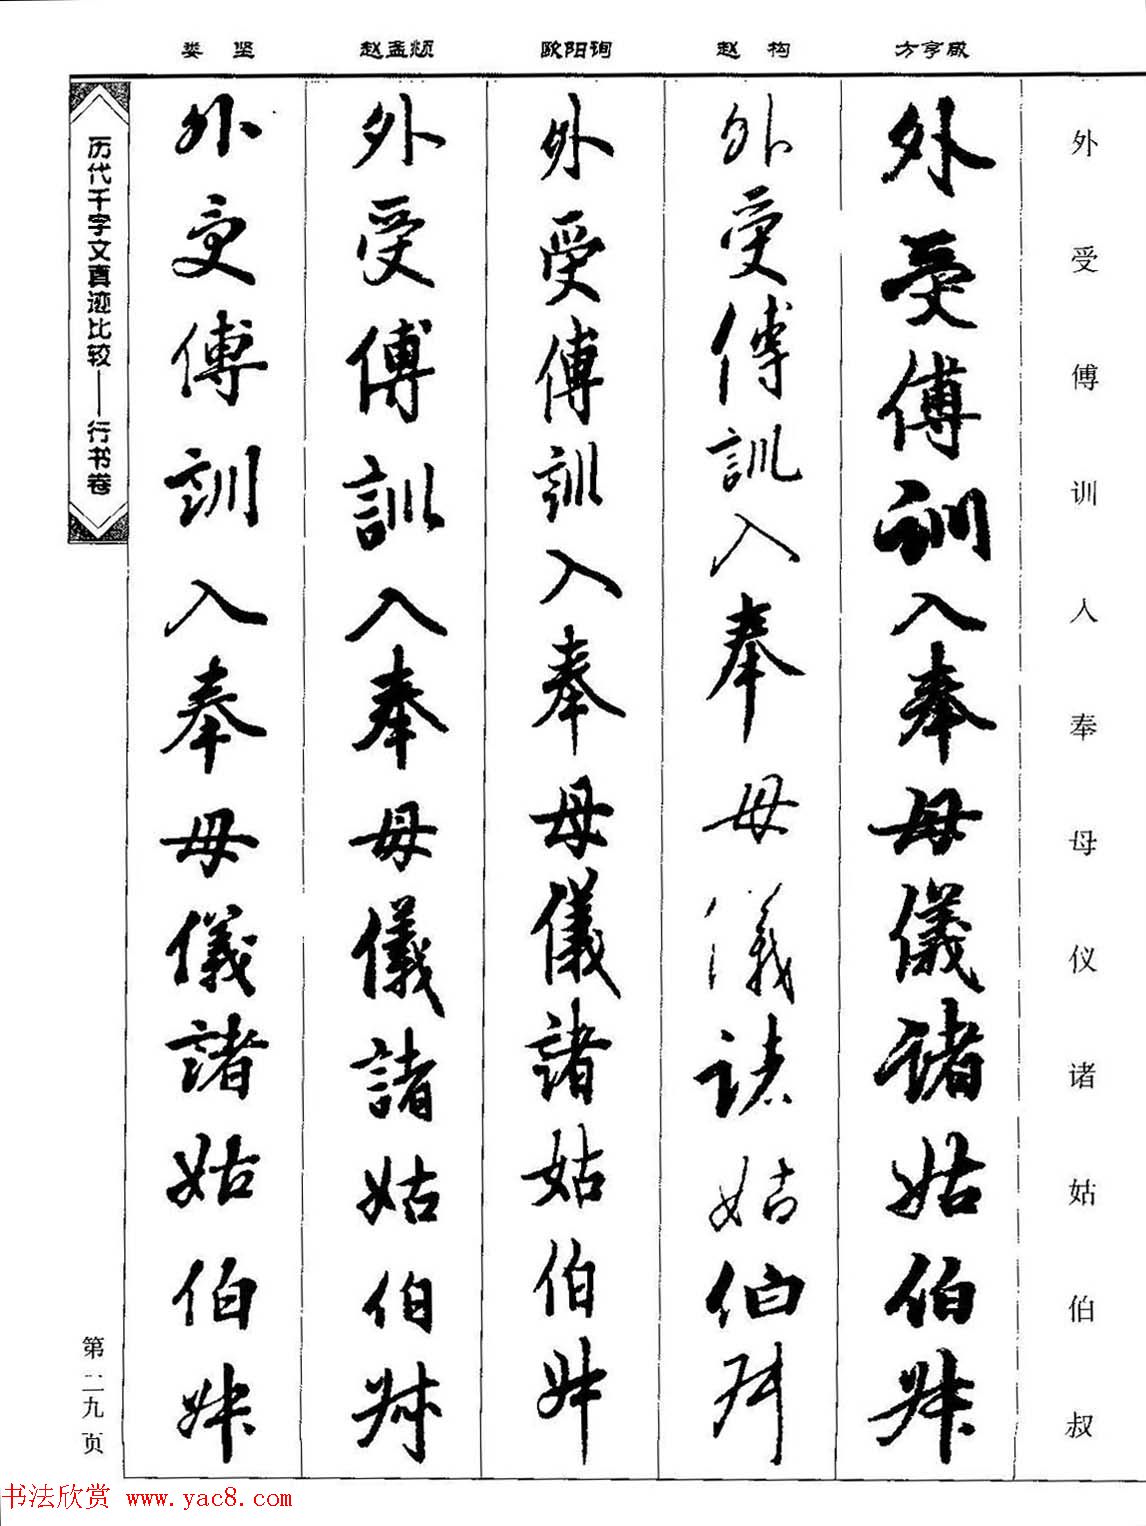 娄坚 赵孟頫 欧阳询 赵构 方亨咸
外受傅训入奉母仪诸姑伯叔
外受傅訓入奉母儀諸姑伯叔
外受傅訓入奉母儀諸姑伯叔
外受傅訓入奉母儀諸姑伯叔
外受傅訓入奉母儀諸姑伯叔
外受傅訓入奉母儀諸姑伯叔
历代千字文真迹比较——行书卷
第二九页
书法欣赏 www.yac8.com